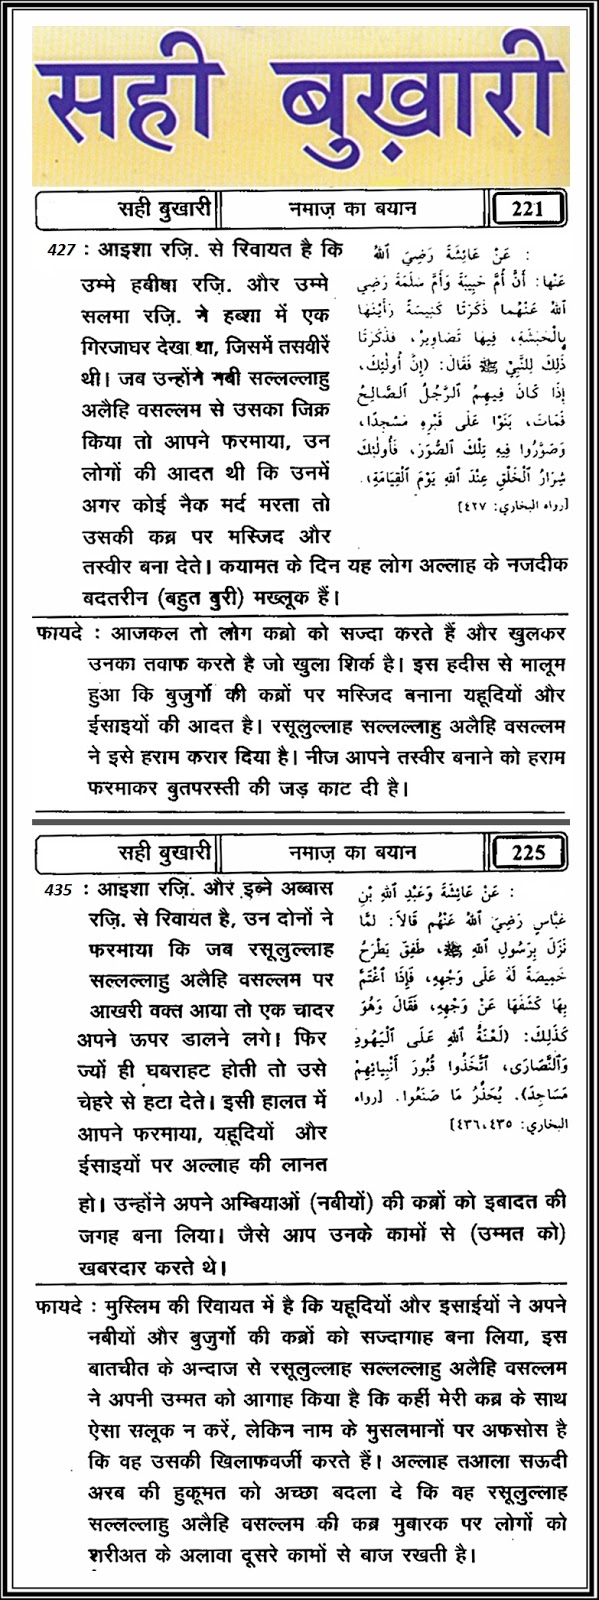 सही बुख़ारी
सही बुखारी नमाज़ का बयान 221
427 : आइशा रज़ि. से रिवायत है कि
उम्मे हबीबा रज़ि. और उम्मे
सलमा रज़ि. ने हब्शा में एक
गिरजाघर देखा था, जिसमें तसवीरें
थी। जब उन्होंने नबी सल्लल्लाहु
अलैहि वसल्लम से उसका जिक्र
किया तो आपने फरमाया, उन
लोगों की आदत थी कि उनमें
अगर कोई नेक मर्द मरता तो
उसकी कब्र पर मस्जिद और
तस्वीर बना देते। कयामत के दिन यह लोग अल्लाह के नजदीक
बदतरीन (बहुत बुरी) मख्लूक हैं।
: عَنْ عَائِشَةَ رَضِيَ اللهُ
عَنْها: أَنَّ أُمَّ حَبِيبَةَ وَأُمَّ سَلَمَةَ رَضِيَ
اللهُ عَنْهُما ذَكَرَتَا كَنِيسَةً رَأَيْنَهَا
بِالْحَبَشَةِ، فِيهَا تَصَاوِيرُ، فَذَكَرَتَا
ذَلِكَ لِلنَّبِيِّ ﷺ فَقَالَ: (إِنَّ أُولٰئِكَ،
إِذَا كَانَ فِيهِمُ الرَّجُلُ الصَّالِحُ
فَمَاتَ، بَنَوْا عَلَى قَبْرِهِ مَسْجِدًا،
وَصَوَّرُوا فِيهِ تِلْكَ الصُّوَرَ، فَأُولٰئِكَ
شِرَارُ الْخَلْقِ عِنْدَ اللهِ يَوْمَ الْقِيَامَةِ).
[رواه البخاري: ٤٢٧]
फायदे : आजकल तो लोग कब्रो को सज्दा करते हैं और खुलकर
उनका तवाफ करते है जो खुला शिर्क है। इस हदीस से मालूम
हुआ कि बुजुर्गो की कब्रों पर मस्जिद बनाना यहूदियों और
ईसाइयों की आदत है। रसूलुल्लाह सल्लल्लाहु अलैहि वसल्लम
ने इसे हराम करार दिया है। नीज आपने तस्वीर बनाने को हराम
फरमाकर बुतपरस्ती की जड़ काट दी है।
सही बुखारी नमाज़ का बयान 225
435 : आइशा रज़ि. और इब्ने अब्बास
रज़ि. से रिवायत है, उन दोनों ने
फरमाया कि जब रसूलुल्लाह
सल्लल्लाहु अलैहि वसल्लम पर
आखरी वक्त आया तो एक चादर
अपने ऊपर डालने लगे। फिर
ज्यों ही घबराहट होती तो उसे
चेहरे से हटा देते। इसी हालत में
आपने फरमाया, यहूदियों और
ईसाइयों पर अल्लाह की लानत
हो। उन्होंने अपने अम्बियाओं (नबीयों) की कब्रों को इबादत की
जगह बना लिया। जैसे आप उनके कामों से (उम्मत को)
खबरदार करते थे।
: عَنْ عَائِشَةَ وَعَبْدِ اللهِ بْنِ
عَبَّاسٍ رَضِيَ اللهُ عَنْهُم قَالاَ: لَمَّا
نَزَلَ بِرَسُولِ اللهِ ﷺ، طَفِقَ يَطْرَحُ
خَمِيصَةً لَهُ عَلَى وَجْهِهِ، فَإِذَا اغْتَمَّ
بِهَا كَشَفَهَا عَنْ وَجْهِهِ، فَقَالَ وَهُوَ
كَذٰلِكَ: (لَعْنَةُ اللهِ عَلَى الْيَهُودِ
وَالنَّصَارَى، اتَّخَذُوا قُبُورَ أَنْبِيَائِهِمْ
مَسَاجِدَ). يُحَذِّرُ مَا صَنَعُوا. [رواه
البخاري: ٤٣٦،٤٣٥]
फायदे : मुस्लिम की रिवायत में है कि यहूदियों और इसाईयों ने अपने
नबीयों और बुजुर्गो की कब्रों को सज्दागाह बना लिया, इस
बातचीत के अन्दाज से रसूलुल्लाह सल्लल्लाहु अलैहि वसल्लम
ने अपनी उम्मत को आगाह किया है कि कहीं मेरी कब्र के साथ
ऐसा सलूक न करें, लेकिन नाम के मुसलमानों पर अफसोस है
कि वह उसकी खिलाफवर्जी करते हैं। अल्लाह तआला सऊदी
अरब की हुकूमत को अच्छा बदला दे कि वह रसूलुल्लाह
सल्लल्लाहु अलैहि वसल्लम की कब्र मुबारक पर लोगों को
शरीअत के अलावा दूसरे कामों से बाज रखती है।